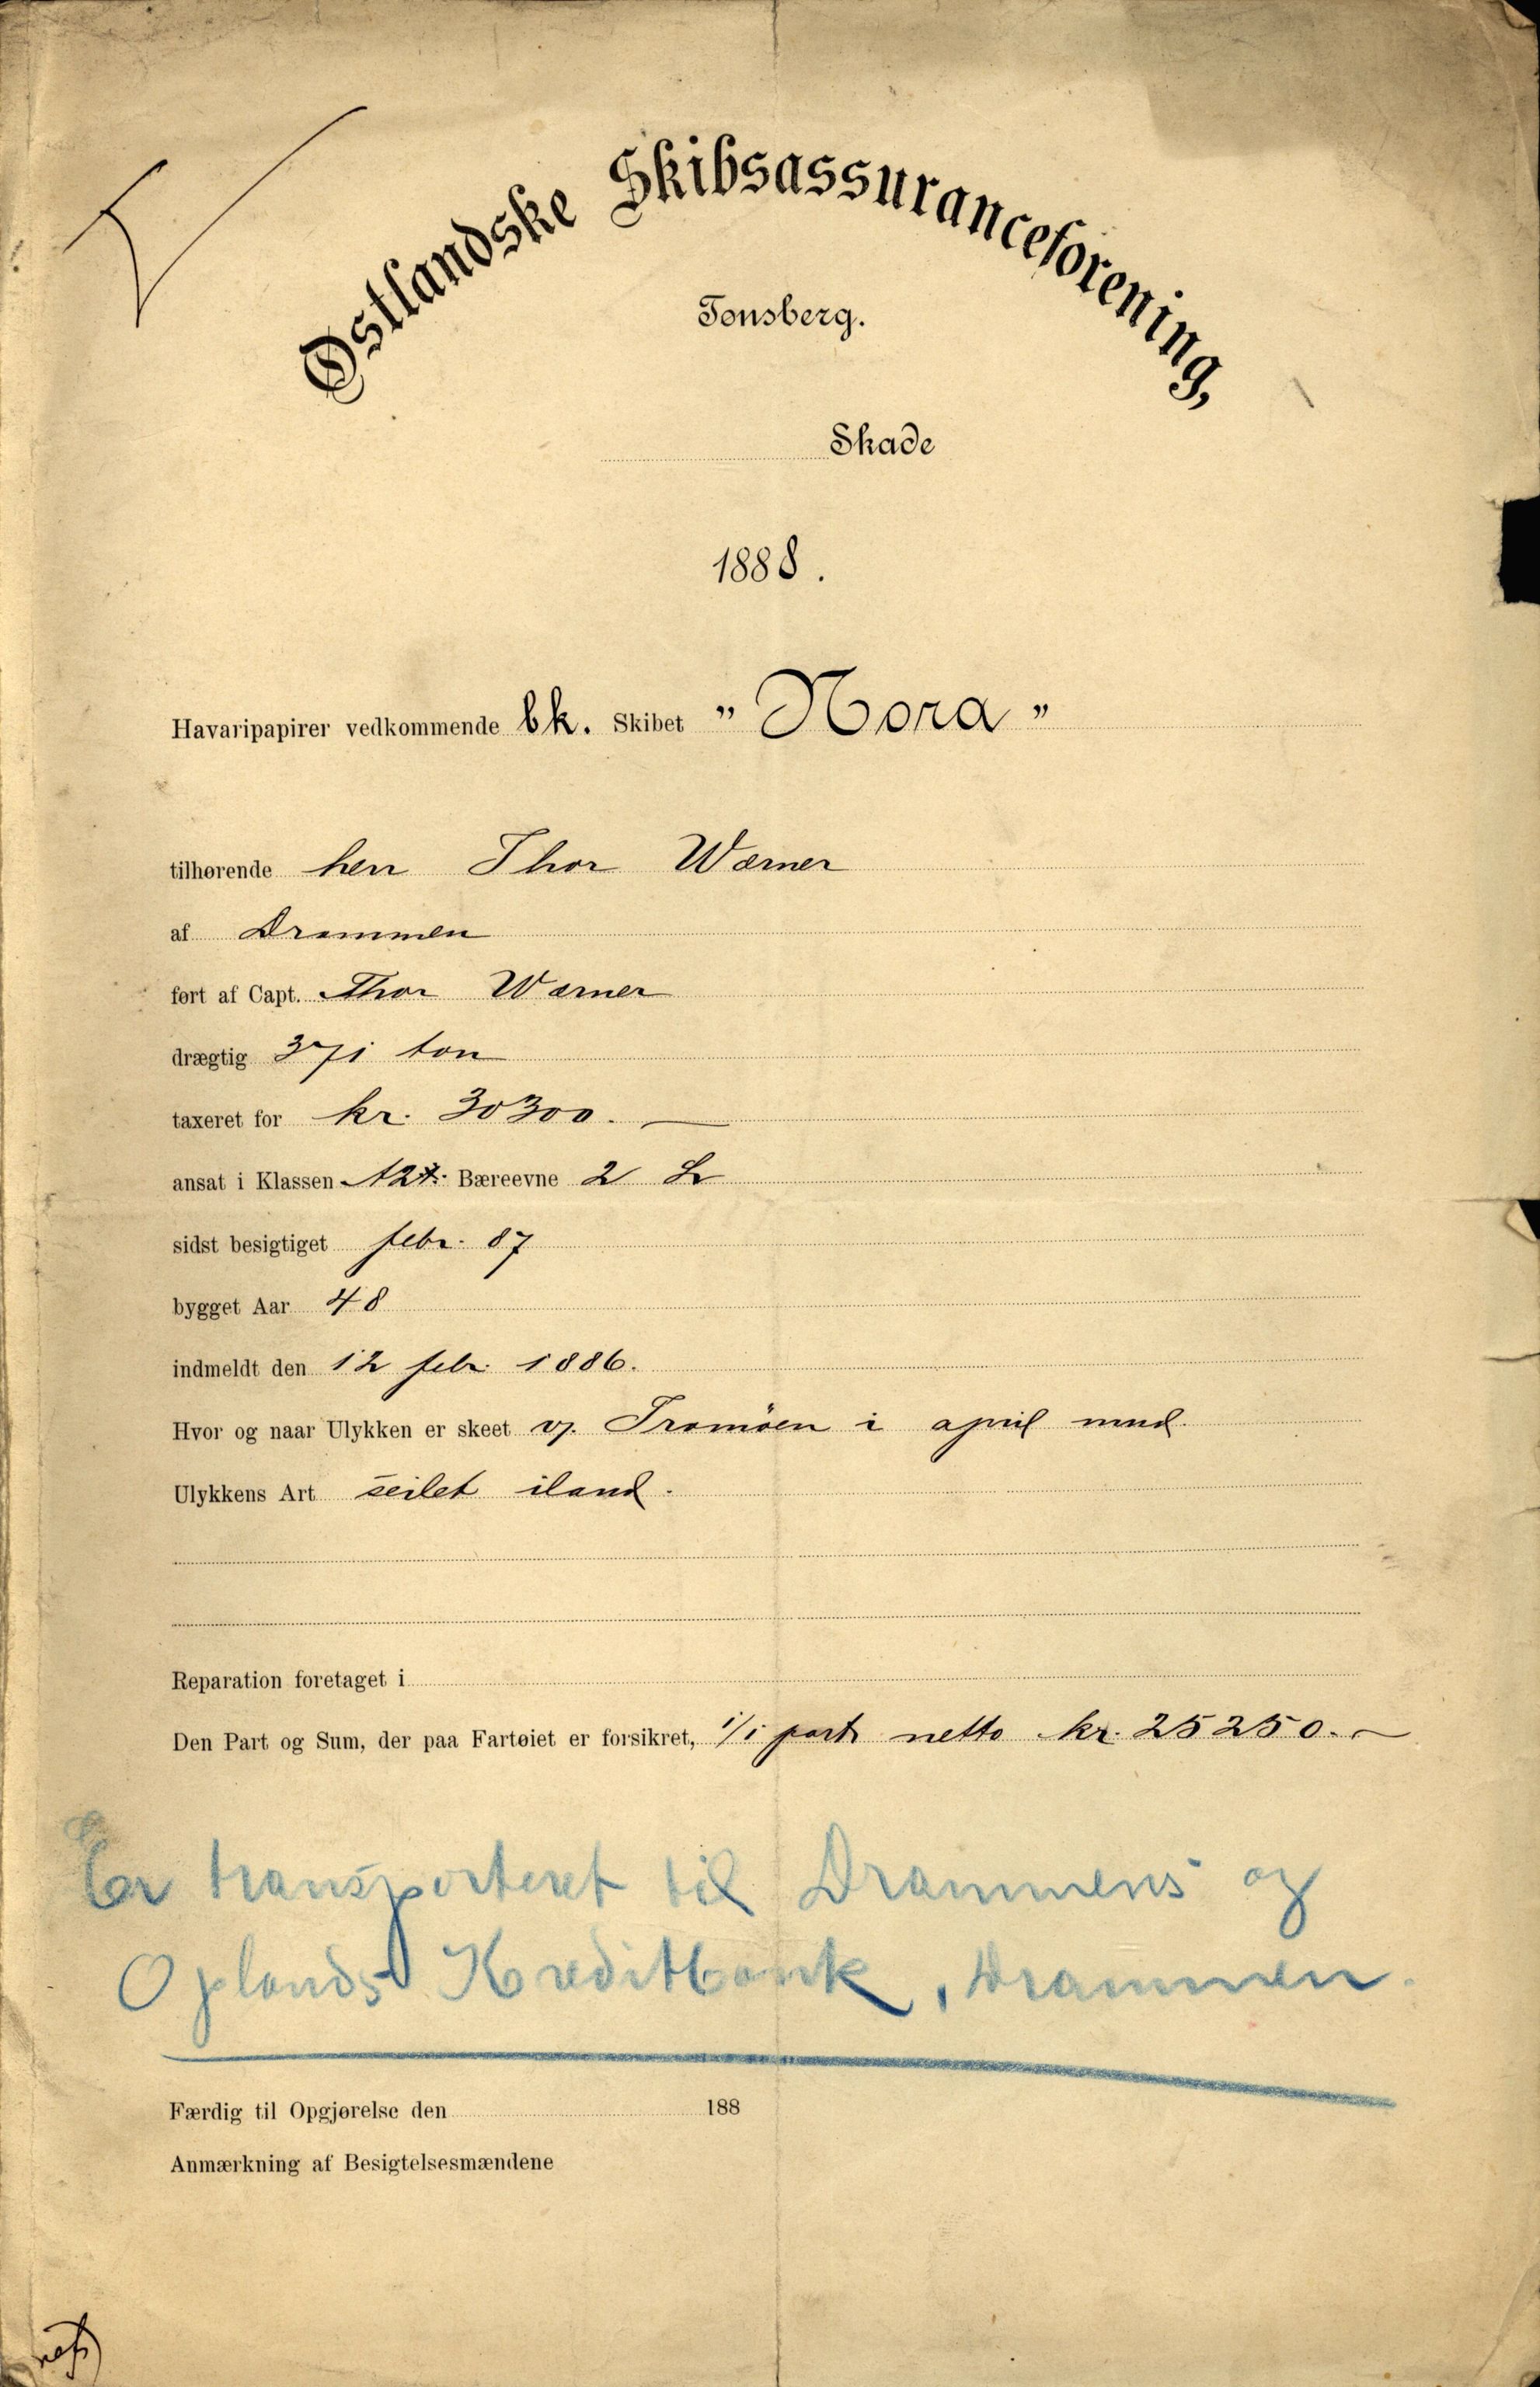 Østlandske Skibsassuranceforening,
Tønsberg.
Skade
1888.
Havaripapirer vedkommende bk. Skibet "Nora"
tilhørende herr Thor Wærner
af Drammen
ført af Capt. Thor Wærner
drægtig 371 ton
taxeret for kr. 30300. —
ansat i Klassen A2 Bæreevne 2 L
sidst besigtiget febr. 87
bygget Aar 48
indmeldt den 12 febr. 1886.
Hvor og naar Ulykken er skeet v/ Tromöen i april mnd.
Ulykkens Art seilet iland.
Reparation foretaget i
Den Part og Sum, der paa Fartøiet er forsikret, 1/1 part netto kr. 25250. —
Er transporteret til Drammens og
Oplands Kreditbank, Drammen.
Færdig til Opgjørelse den 188
Anmærkning af Besigtelsesmændene